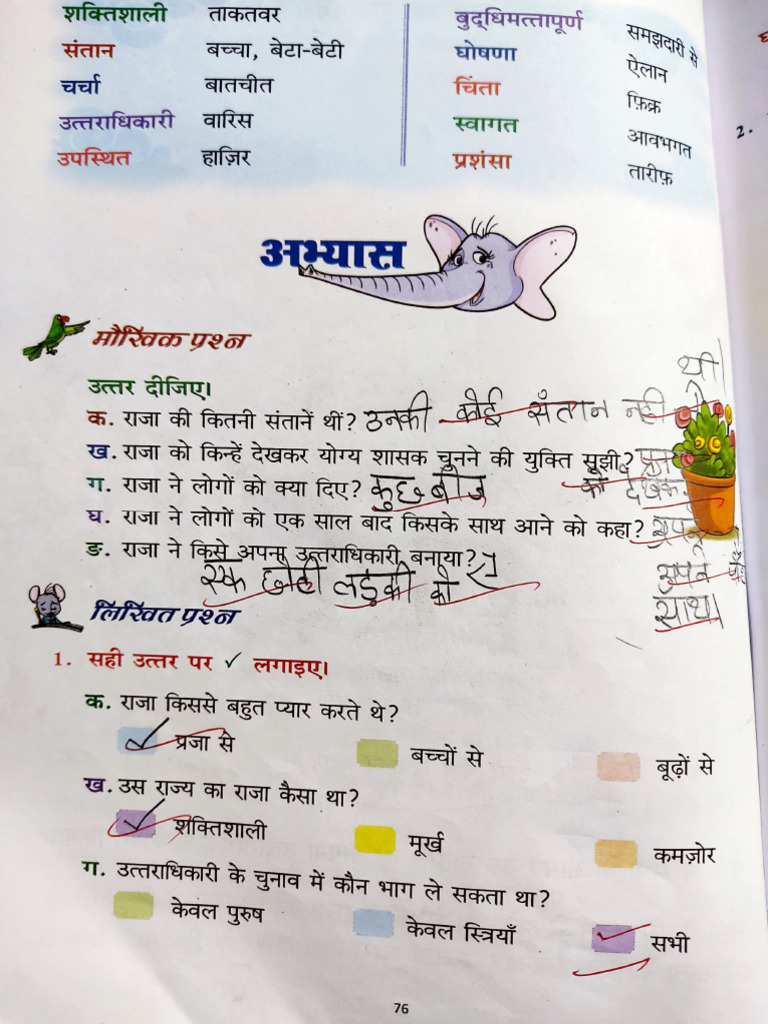 शक्तिशाली ताकतवर
संतान बच्चा, बेटा-बेटी
चर्चा बातचीत
उत्तराधिकारी वारिस
उपस्थित हाज़िर
बुद्धिमत्तापूर्ण समझदारी से
घोषणा ऐलान
चिंता फ़िक्र
स्वागत आवभगत
प्रशंसा तारीफ़
2.
अभ्यास
मौखिक प्रश्न
उत्तर दीजिए।
क. राजा की कितनी संतानें थीं? उनकी कोई संतान नही थी।
ख. राजा को किन्हें देखकर योग्य शासक चुनने की युक्ति सूझी?
को देखकर
ग. राजा ने लोगों को क्या दिए? कुछ बीज
घ. राजा ने लोगों को एक साल बाद किसके साथ आने को कहा?
अपने
साथ।
ङ. राजा ने किसे अपना उत्तराधिकारी बनाया?
एक छोटी लड़की को
लिखित प्रश्न
1. सही उत्तर पर ✓ लगाइए।
क. राजा किससे बहुत प्यार करते थे?
✓ प्रजा से बच्चों से बूढ़ों से
ख. उस राज्य का राजा कैसा था?
✓ शक्तिशाली मूर्ख कमज़ोर
ग. उत्तराधिकारी के चुनाव में कौन भाग ले सकता था?
केवल पुरुष केवल स्त्रियाँ ✓ सभी
76